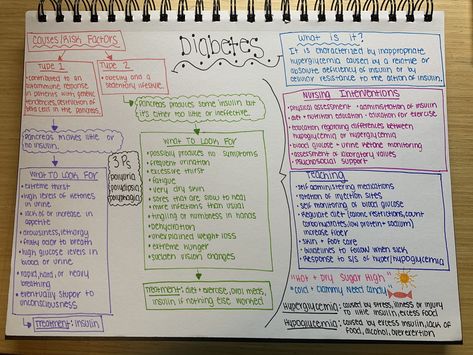 Diabetes
Causes/Risk Factors
Type 1
• contributed to an
autoimmune response
in patients with genetic
tendencies, destruction of
beta cells in the pancreas.
Pancreas makes little or
no insulin.
What to look for
• extreme thirst
• high levels of ketones in
urine
• lack of or increase in
appetite
• drowsiness, lethargy
• fruity odor to breath
• high glucose levels in
blood or urine
• rapid, hard, or heavy
breathing
• eventually stupor to
unconsciousness
Treatment: insulin
Type 2
• obesity and a
sedentary lifestyle.
Pancreas produces some insulin but
it's either too little or ineffective.
3 P's
polyuria
polydipsia
polyphagia
What to look for
• possibly produces no symptoms
• frequent urination
• excessive thirst
• fatigue
• very dry skin
• sores that are slow to heal
• more infections than usual
• tingling or numbness in hands
• dehydration
• unexplained weight loss
• extreme hunger
• sudden vision changes
Treatment: diet + exercise, oral meds,
insulin if nothing else worked
What is it?
It is characterized by inappropriate
hyperglycemia caused by a relative or
absolute deficiency of insulin or by
cellular resistance to the action of insulin.
Nursing Interventions
• physical assessment • administration of insulin
• diet + nutrition education • education for exercise
• education regarding differences between
hypoglycemia or hyperglycemia
• blood glucose + urine ketone monitoring
• assessment of laboratory values
• psychosocial support
Teaching
• self administering medications
• rotation of injection sites
• self monitoring of blood glucose
• Regulate diet (caloric restrictions, count
carbohydrates, low protein + sodium)
increase fiber
• skin + foot care
• guidelines to follow when sick
• Response to s/s of hyper/hypoglycemia
"Hot + Dry Sugar High"
"Cold + Clammy Need Candy"
Hyperglycemia: caused by stress, illness or injury
to little insulin, excess food
Hypoglycemia: caused by excess insulin, lack of
food, alcohol, overexertion